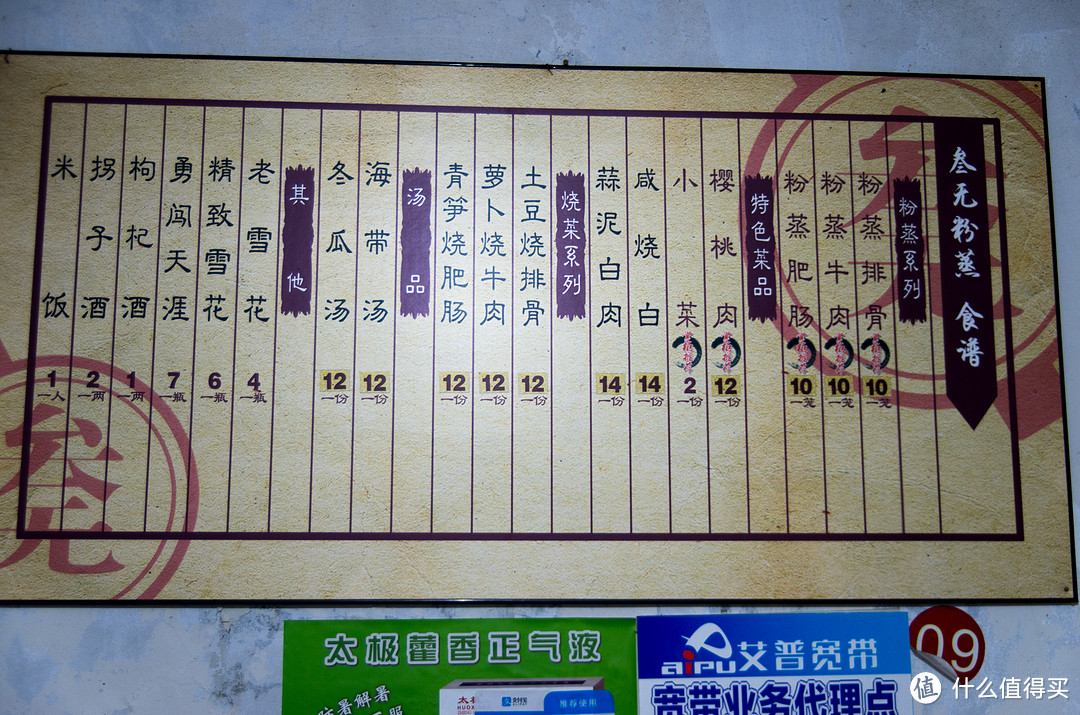 叁无粉蒸 食谱
粉蒸系列
粉蒸排骨 10 一笼
粉蒸牛肉 10 一笼
粉蒸肥肠 10 一笼
特色菜品
樱桃肉 12 一份
小菜 2 一份
咸烧白 14 一份
蒜泥白肉 14 一份
烧菜系列
土豆烧排骨 12 一份
萝卜烧牛肉 12 一份
青笋烧肥肠 12 一份
汤品
海带汤 12 一份
冬瓜汤 12 一份
其他
老雪花 4 一瓶
精致雪花 6 一瓶
勇闯天涯 7 一瓶
枸杞酒 1 一两
拐子酒 2 一两
米饭 1 一人
叁
无
太极藿香正气液
防暑解暑
推荐使用
aipu艾普宽带
宽带业务代理点
09
值 什么值得买